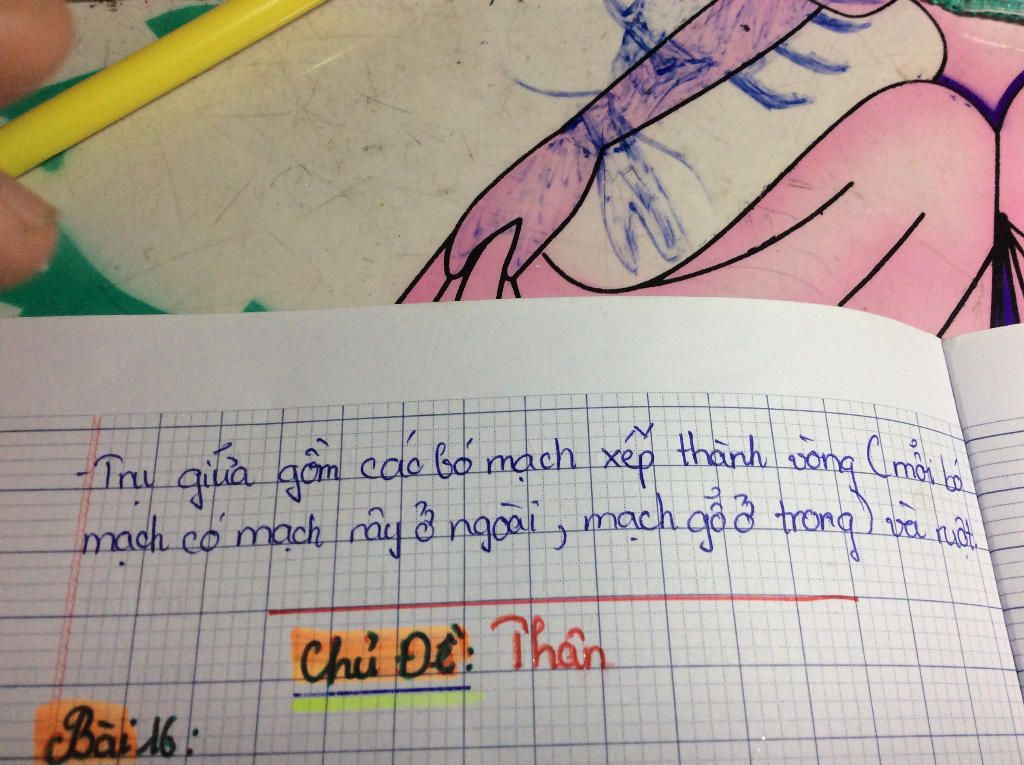 - Trụ giữa gồm các bó mạch xếp thành vòng (mỗi bó
mạch có mạch rây ở ngoài, mạch gỗ ở trong) và ruột.
Chủ Đề: Thân
Bài 16: